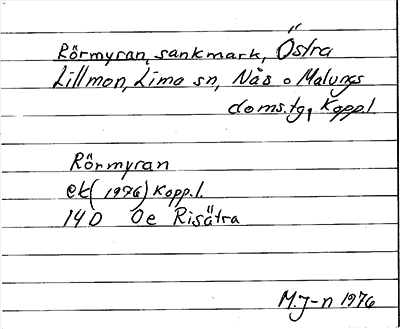 Rörmyran, sankmark, Östra
Lillmon, Lima sn, Nås o Malungs
doms.tg, Kopp.l.
Rörmyran
ek (1976) Kopp.l.
14D Oe Risätra
M.J-n 1976